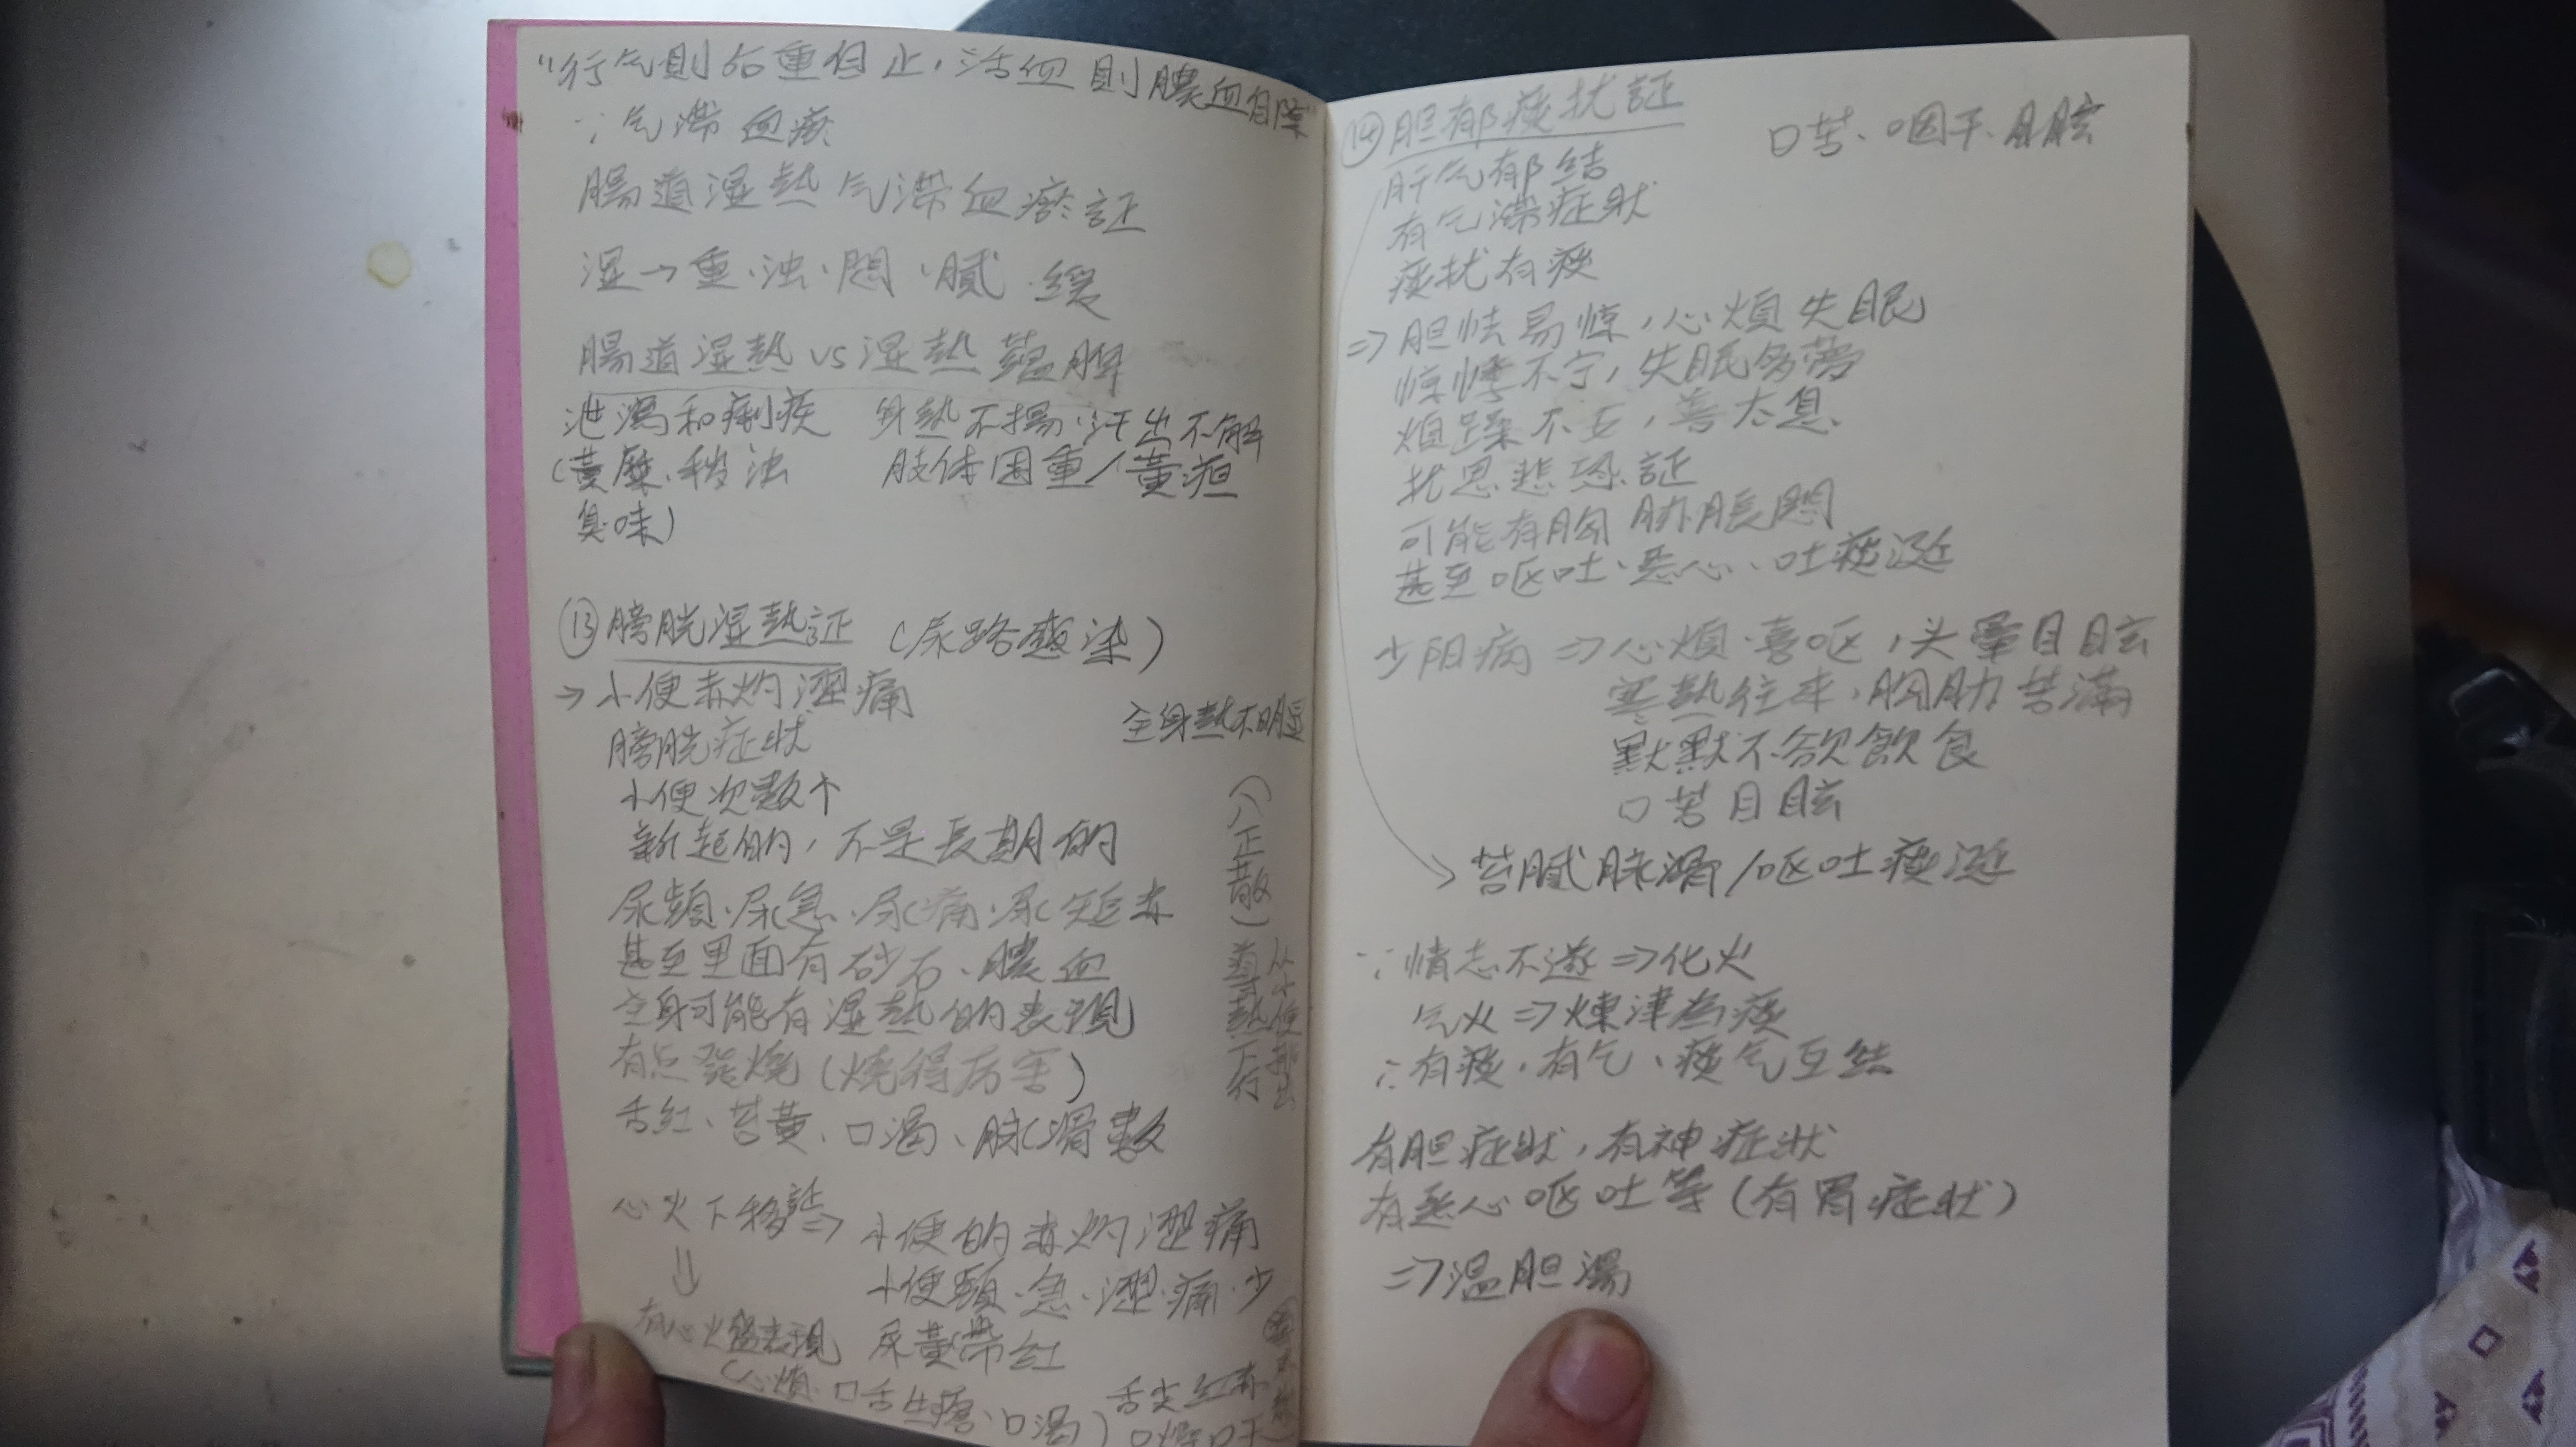 "行气則后重自止，活血則膿血自除"
∵气滯血瘀
腸道湿熱气滞血瘀証
湿→重、浊、悶、膩、緩
腸道湿熱 vs 湿熱蘊脾
泄瀉和痢疾 身熱不揚、汗出不解
(黄糜、秽浊 肢体困重/黄疸
臭味)
⑬膀胱湿熱証 (尿路感染)
→小便赤灼澀痛
全身熱不明显
膀胱症状
小便次数个
新起的，不是長期的
尿頻、尿急、尿痛、尿短赤
甚至里面有砂石、膿血
全身可能有湿熱的表現
有点發燒(燒得厉害)
舌紅、苔黄、口渴、脉滑数
(八正散)
導熱下行
从小便排出
心火下移証⇒小便的赤灼澀痛
小便頻、急、澀、痛、少
⇓
有心火的表現 尿黄帶紅
(心煩、口舌生瘡、口渴) 舌尖紅赤
⑭胆郁痰扰証
口苦、咽干、目眩
肝气郁结
有气滯症狀
痰扰有痰
⇒胆怯易惊，心煩失眠
惊悸不宁，失眠多夢
煩躁不安，善太息
可能有胸脇脹悶
甚至呕吐、恶心、吐痰涎
少阳病⇒心煩、喜呕，头暈目眩
寒熱往来，胸肋苦滿
默默不欲飲食
口苦目眩
→苔膩脉滑/呕吐痰涎
∵情志不遂⇒化火
气火⇒煉津為痰
∴有痰、有气、痰气互结
有胆症狀，有神症狀
有恶心呕吐等(有胃症狀)
⇒温胆湯